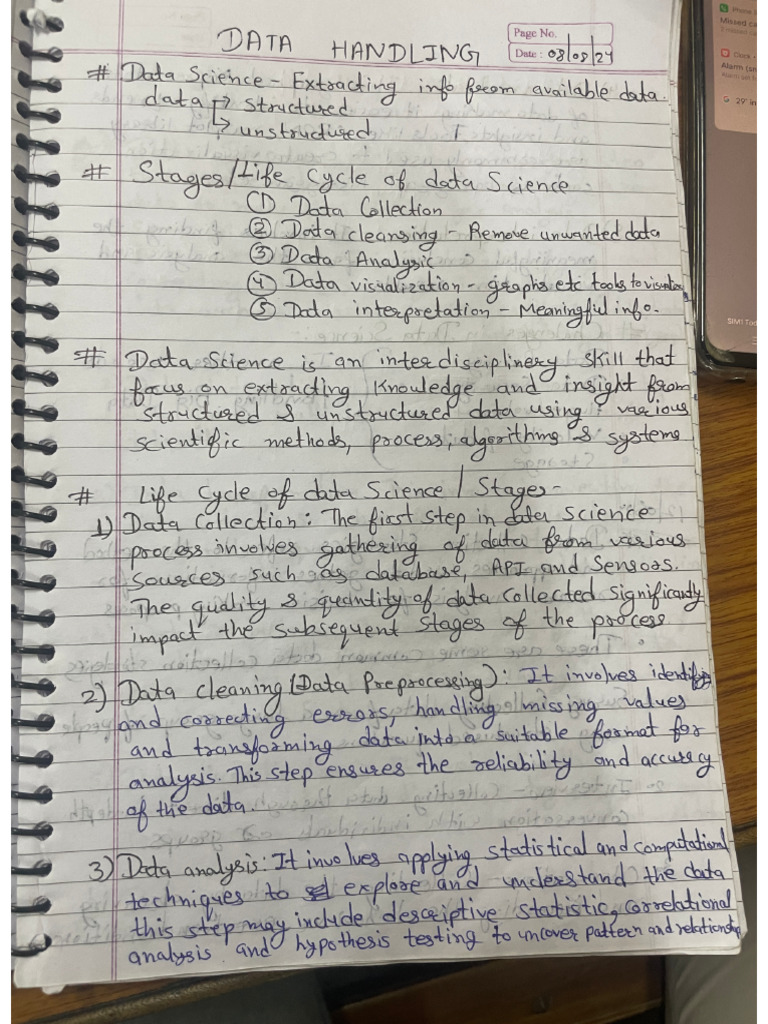 DATA HANDLING
Page No.
Date: 08/08/24
# Data Science - Extracting info from available data.
data → structured
→ unstructured
# Stages/Life Cycle of data Science -
① Data Collection
② Data cleansing - Remove unwanted data
③ Data Analysis
④ Data visualization - graphs etc tools to visualize
⑤ Data interpretation - Meaningful info.
# Data Science is an interdisciplinery skill that
focus on extracting knowledge and insight from
structured & unstructured data using various
scientific methods, process, algorithms & systems
# Life Cycle of data Science / Stages-
1) Data Collection: The first step in data science
process involves gathering of data from various
sources such as database, API and Sensors.
The quality & quantity of data collected significantly
impact the subsequent stages of the process
2) Data cleaning (Data Preprocessing): It involves identifying
and correcting errors, handling missing values
and transforming data into a suitable format for
analysis. This step ensures the reliability and accuracy
of the data.
3) Data analysis: It involves applying statistical and computational
techniques to explore and understand the data
this step may include descriptive statistic, correlational
analysis and hypothesis testing to uncover pattern and relationship
Missed ca
Clock
Alarm
G 29° in
SIM1 Tod